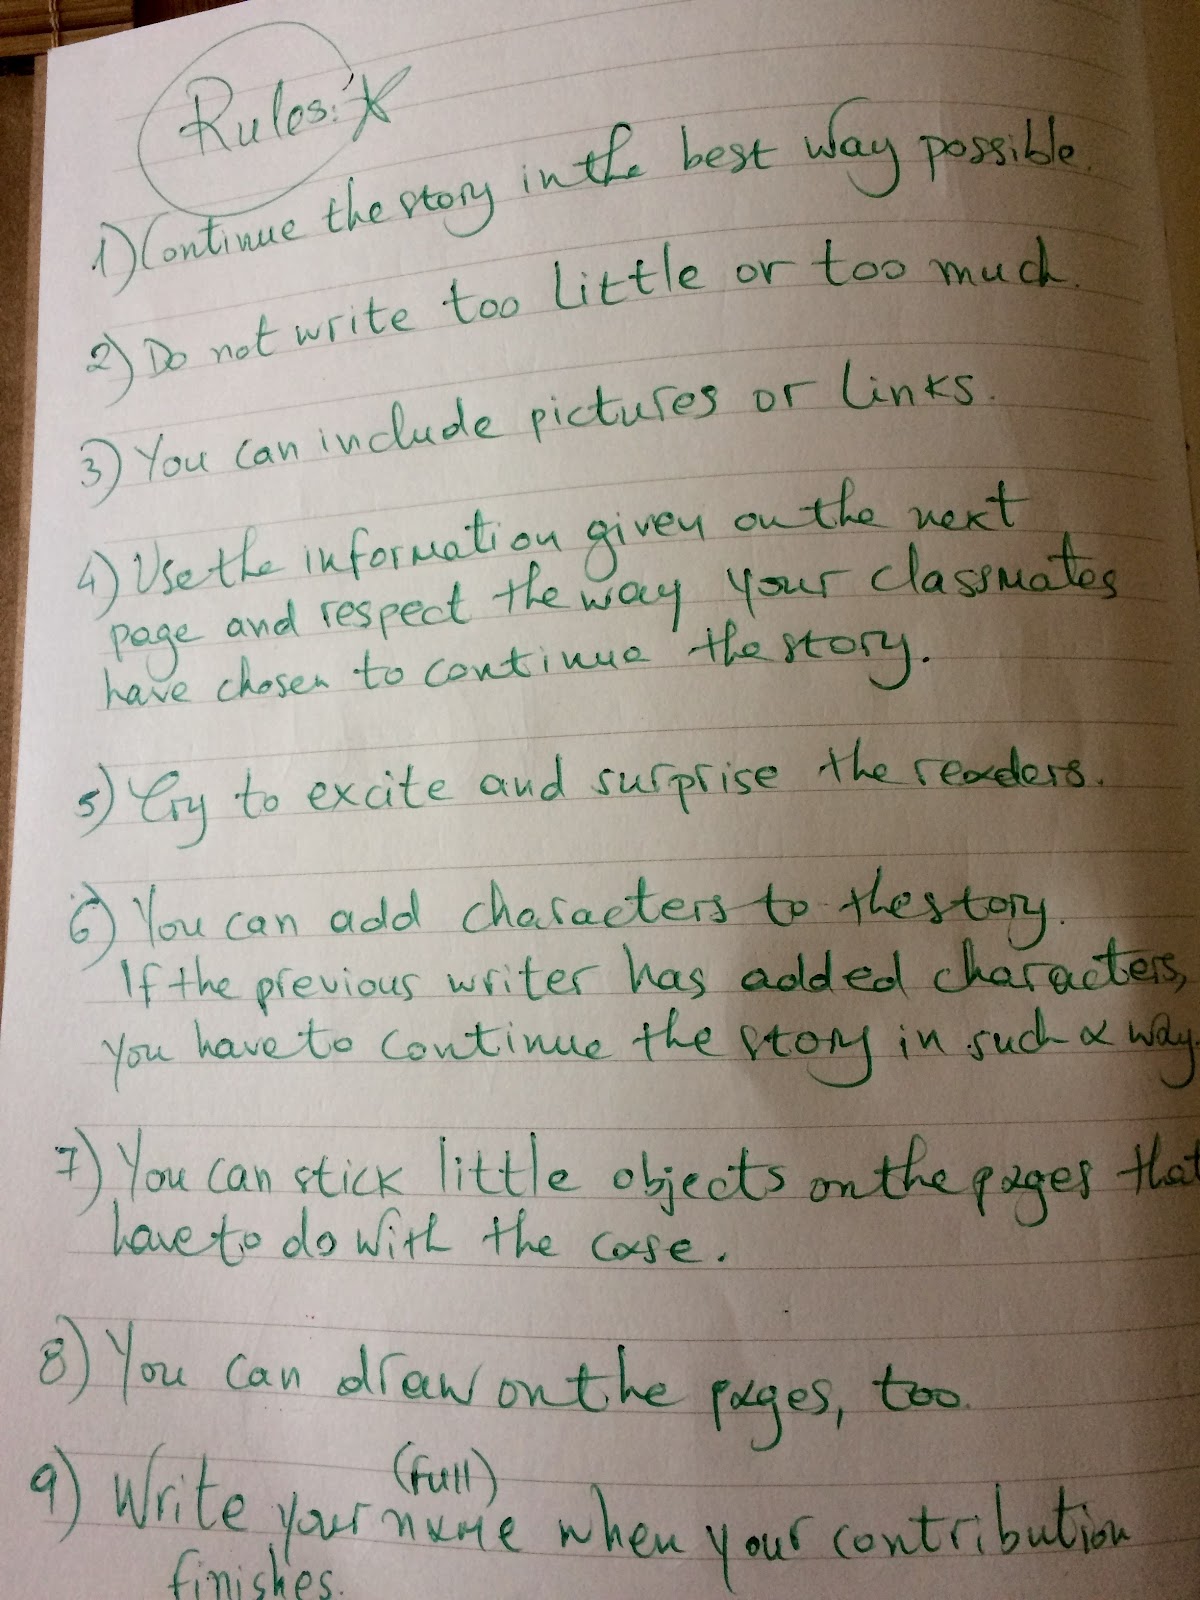 Rules:
1) Continue the story in the best way possible.
2) Do not write too little or too much.
3) You can include pictures or links.
4) Use the information given on the next
page and respect the way your classmates
have chosen to continue the story.
5) Try to excite and surprise the readers.
6) You can add characters to the story.
If the previous writer has added characters,
you have to continue the story in such a way.
7) You can stick little objects on the pages that
have to do with the case.
8) You can draw on the pages, too.
(full)
9) Write your name when your contribution
finishes.